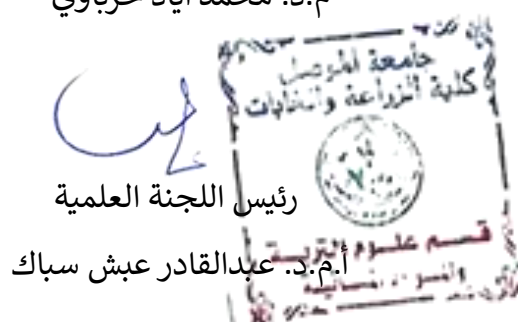 م.د. محمد اياد حرباوي
جامعة الموصل
كلية الزراعة والغابات
رئيس اللجنة العلمية
قسم علوم التربة
أ.م.د. عبدالقادر عبش سباك
والموارد المائية